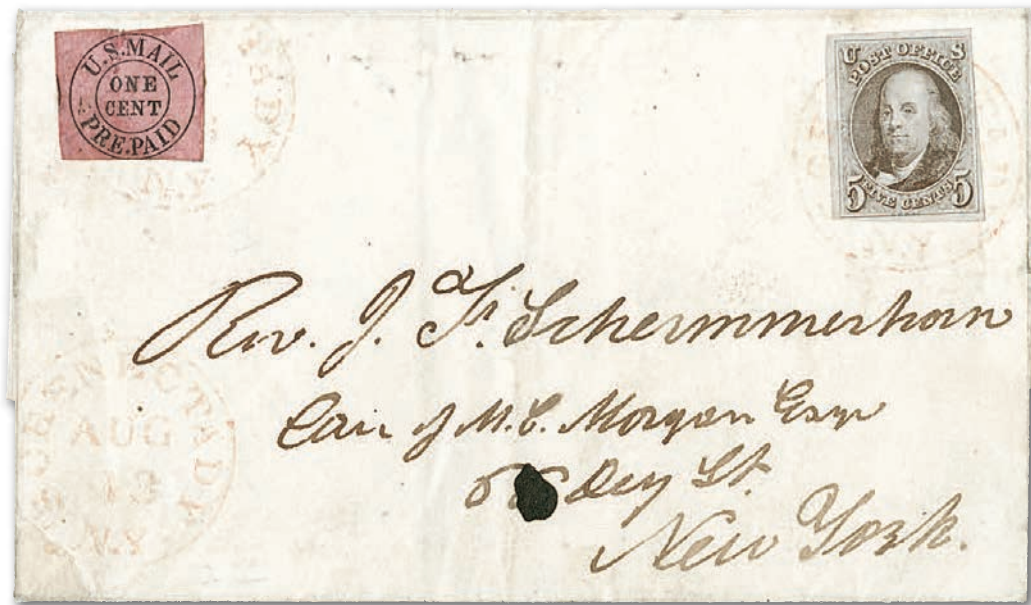 U.S.MAIL
ONE
CENT
PRE.PAID
U S
POST OFFICE
5 FIVE CENTS 5
Rev. J. F. Schermmerhorn
Care of M. C. Morgan Esqr
Dey St.
New York.
SCHENECTADY
AUG
N.Y.